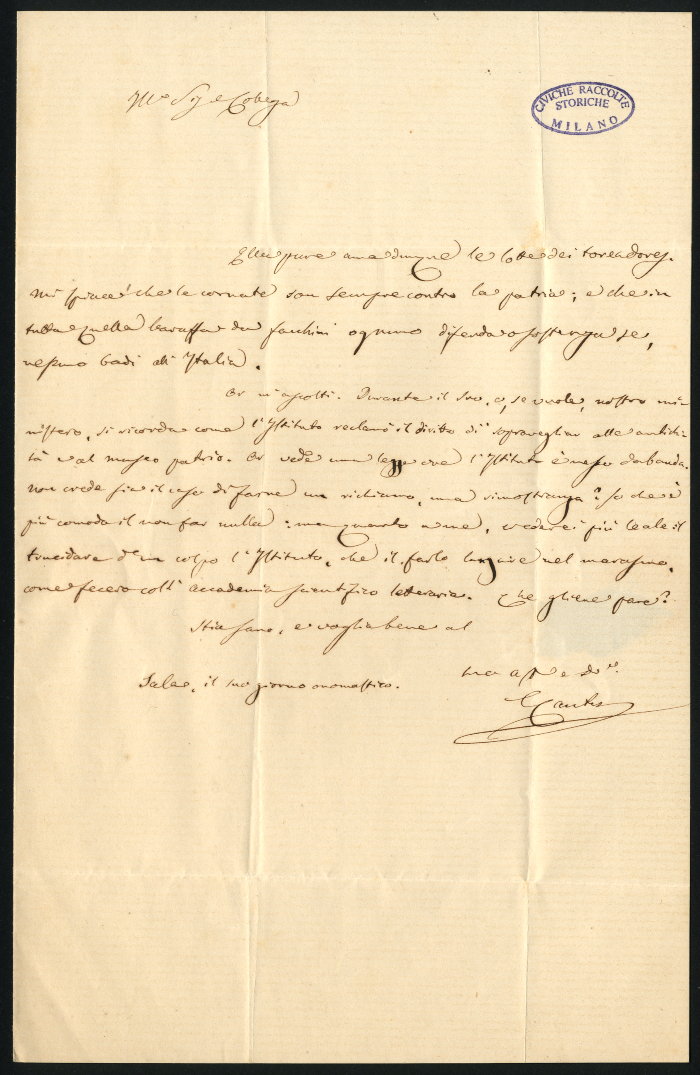 Ill.o Sig e Collega
CIVICHE RACCOLTE
STORICHE
MILANO
Ella pure ama dunque le lotte dei toreadores.
Mi spiace che le cornate son sempre contro la patria; e che in
tutta quella baruffa da facchini ognuno difenda o sostenga se,
nessuno badi all'Italia.
Or m'ascolti. Durante il suo, o, se vuole, nostro mi-
nistero, si ricorda come l'Istituto reclamò il diritto di sopravegliar alle antichi-
tà e al museo patrio. Or vede una legge ove l'Istituto è messo da banda.
non crede sia il caso di farne un richiamo, una rimostranza? So che è
più comodo il non far nulla: ma quanto a me, crederei più leale il
trucidare d'un colpo l'Istituto, che il farlo languire nel marasmo,
come fecero coll'accademia scientifico letteraria. Che gliene pare?
Stia sano, e voglia bene al
suo aff e d.mo
Sala, il suo giorno onomastico.
C Cantù